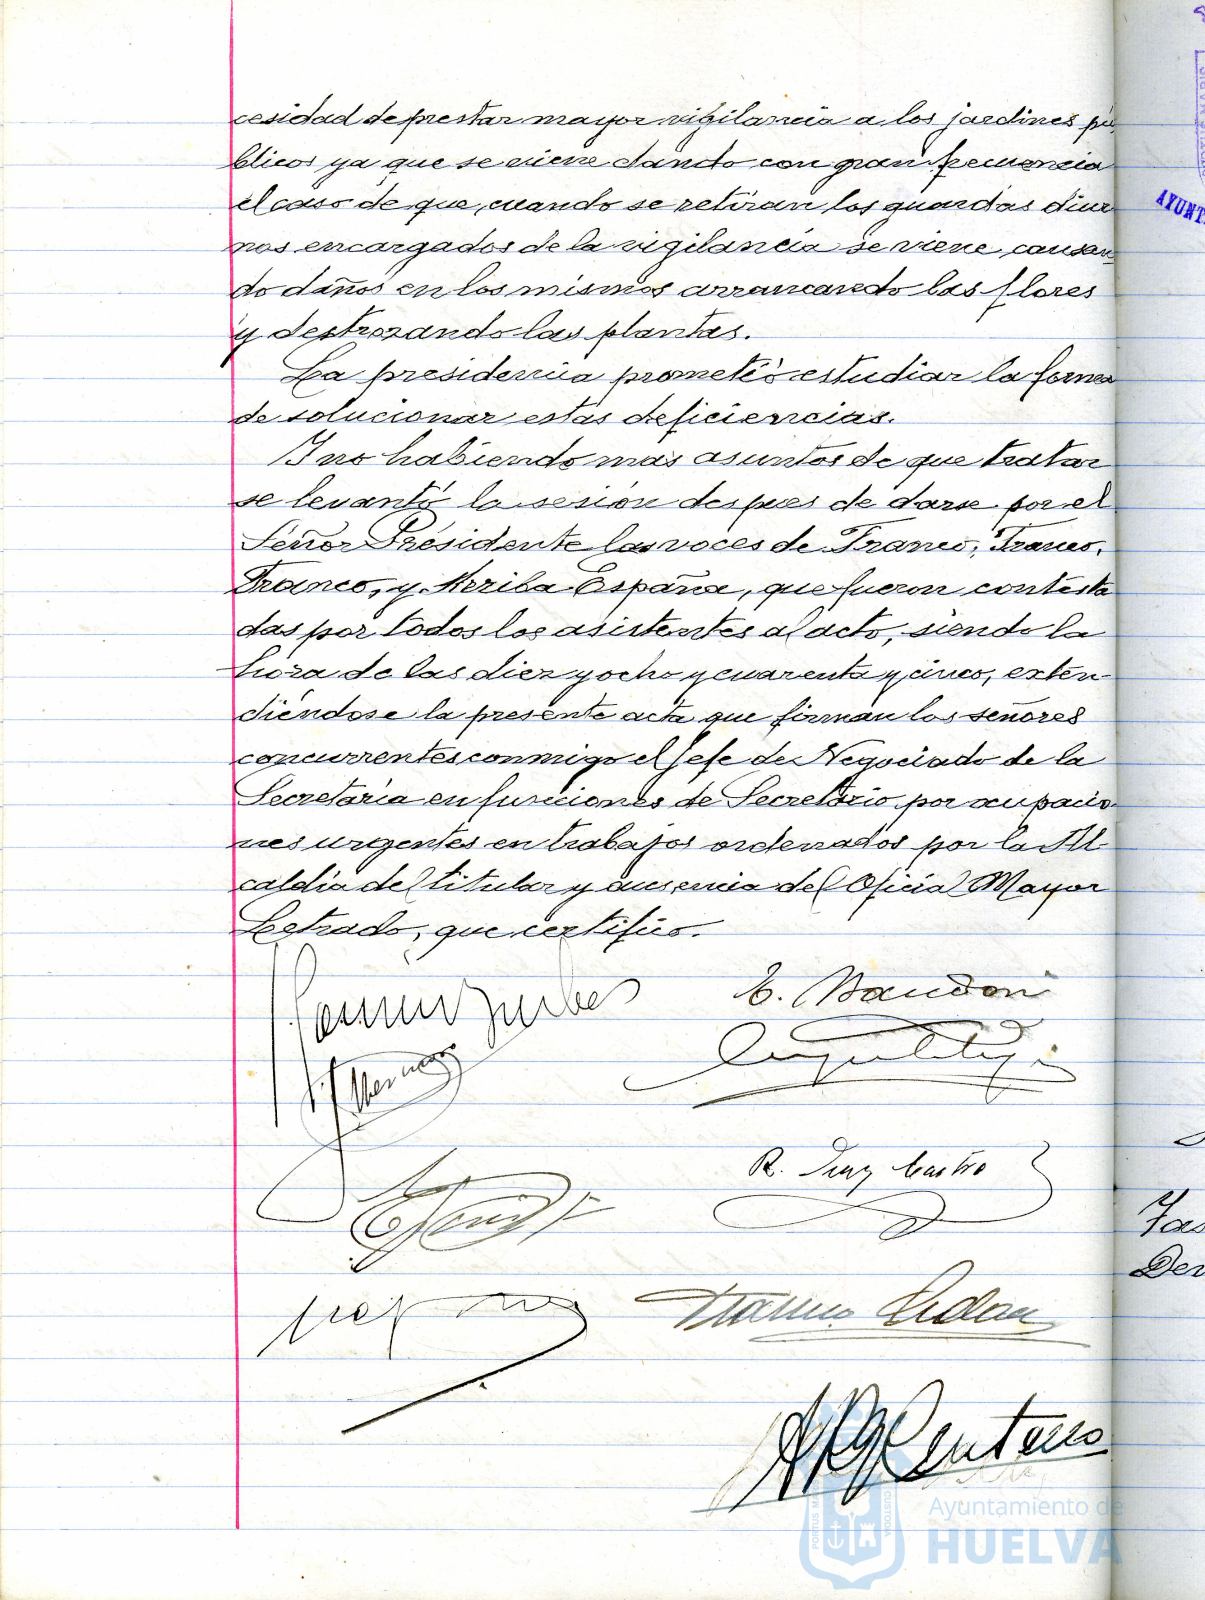 cesidad de prestar mayor vigilancia a los jardines pú
blicos ya que se viene dando con gran frecuencia
el caso de que, cuando se retiran los guardas diur
nos encargados de la vigilancia se viene causan
do daños en los mismos arrancando las flores
y destrozando las plantas.
La presidencia prometió estudiar la forma
de solucionar estas deficiencias.
Y no habiendo mas asuntos de que tratar
se levantó la sesión despues de darse por el
Señor Presidente las voces de Franco, Franco,
Franco, y Arriba España, que fueron contesta
das por todos los asistentes al acto, siendo la
hora de las diez y ocho y cuarenta y cinco, exten-
diéndose la presente acta que firman los señores
concurrentes conmigo el Jefe de Negociado de la
Secretaría en funciones de Secretario por ocupacio-
nes urgentes en trabajos ordenados por la Al-
caldía del titular y ausencia del Oficial Mayor
Letrado, que certifico.
R. Diaz Castro
Centeno
AYUNT
Ayuntamiento de
HUELVA